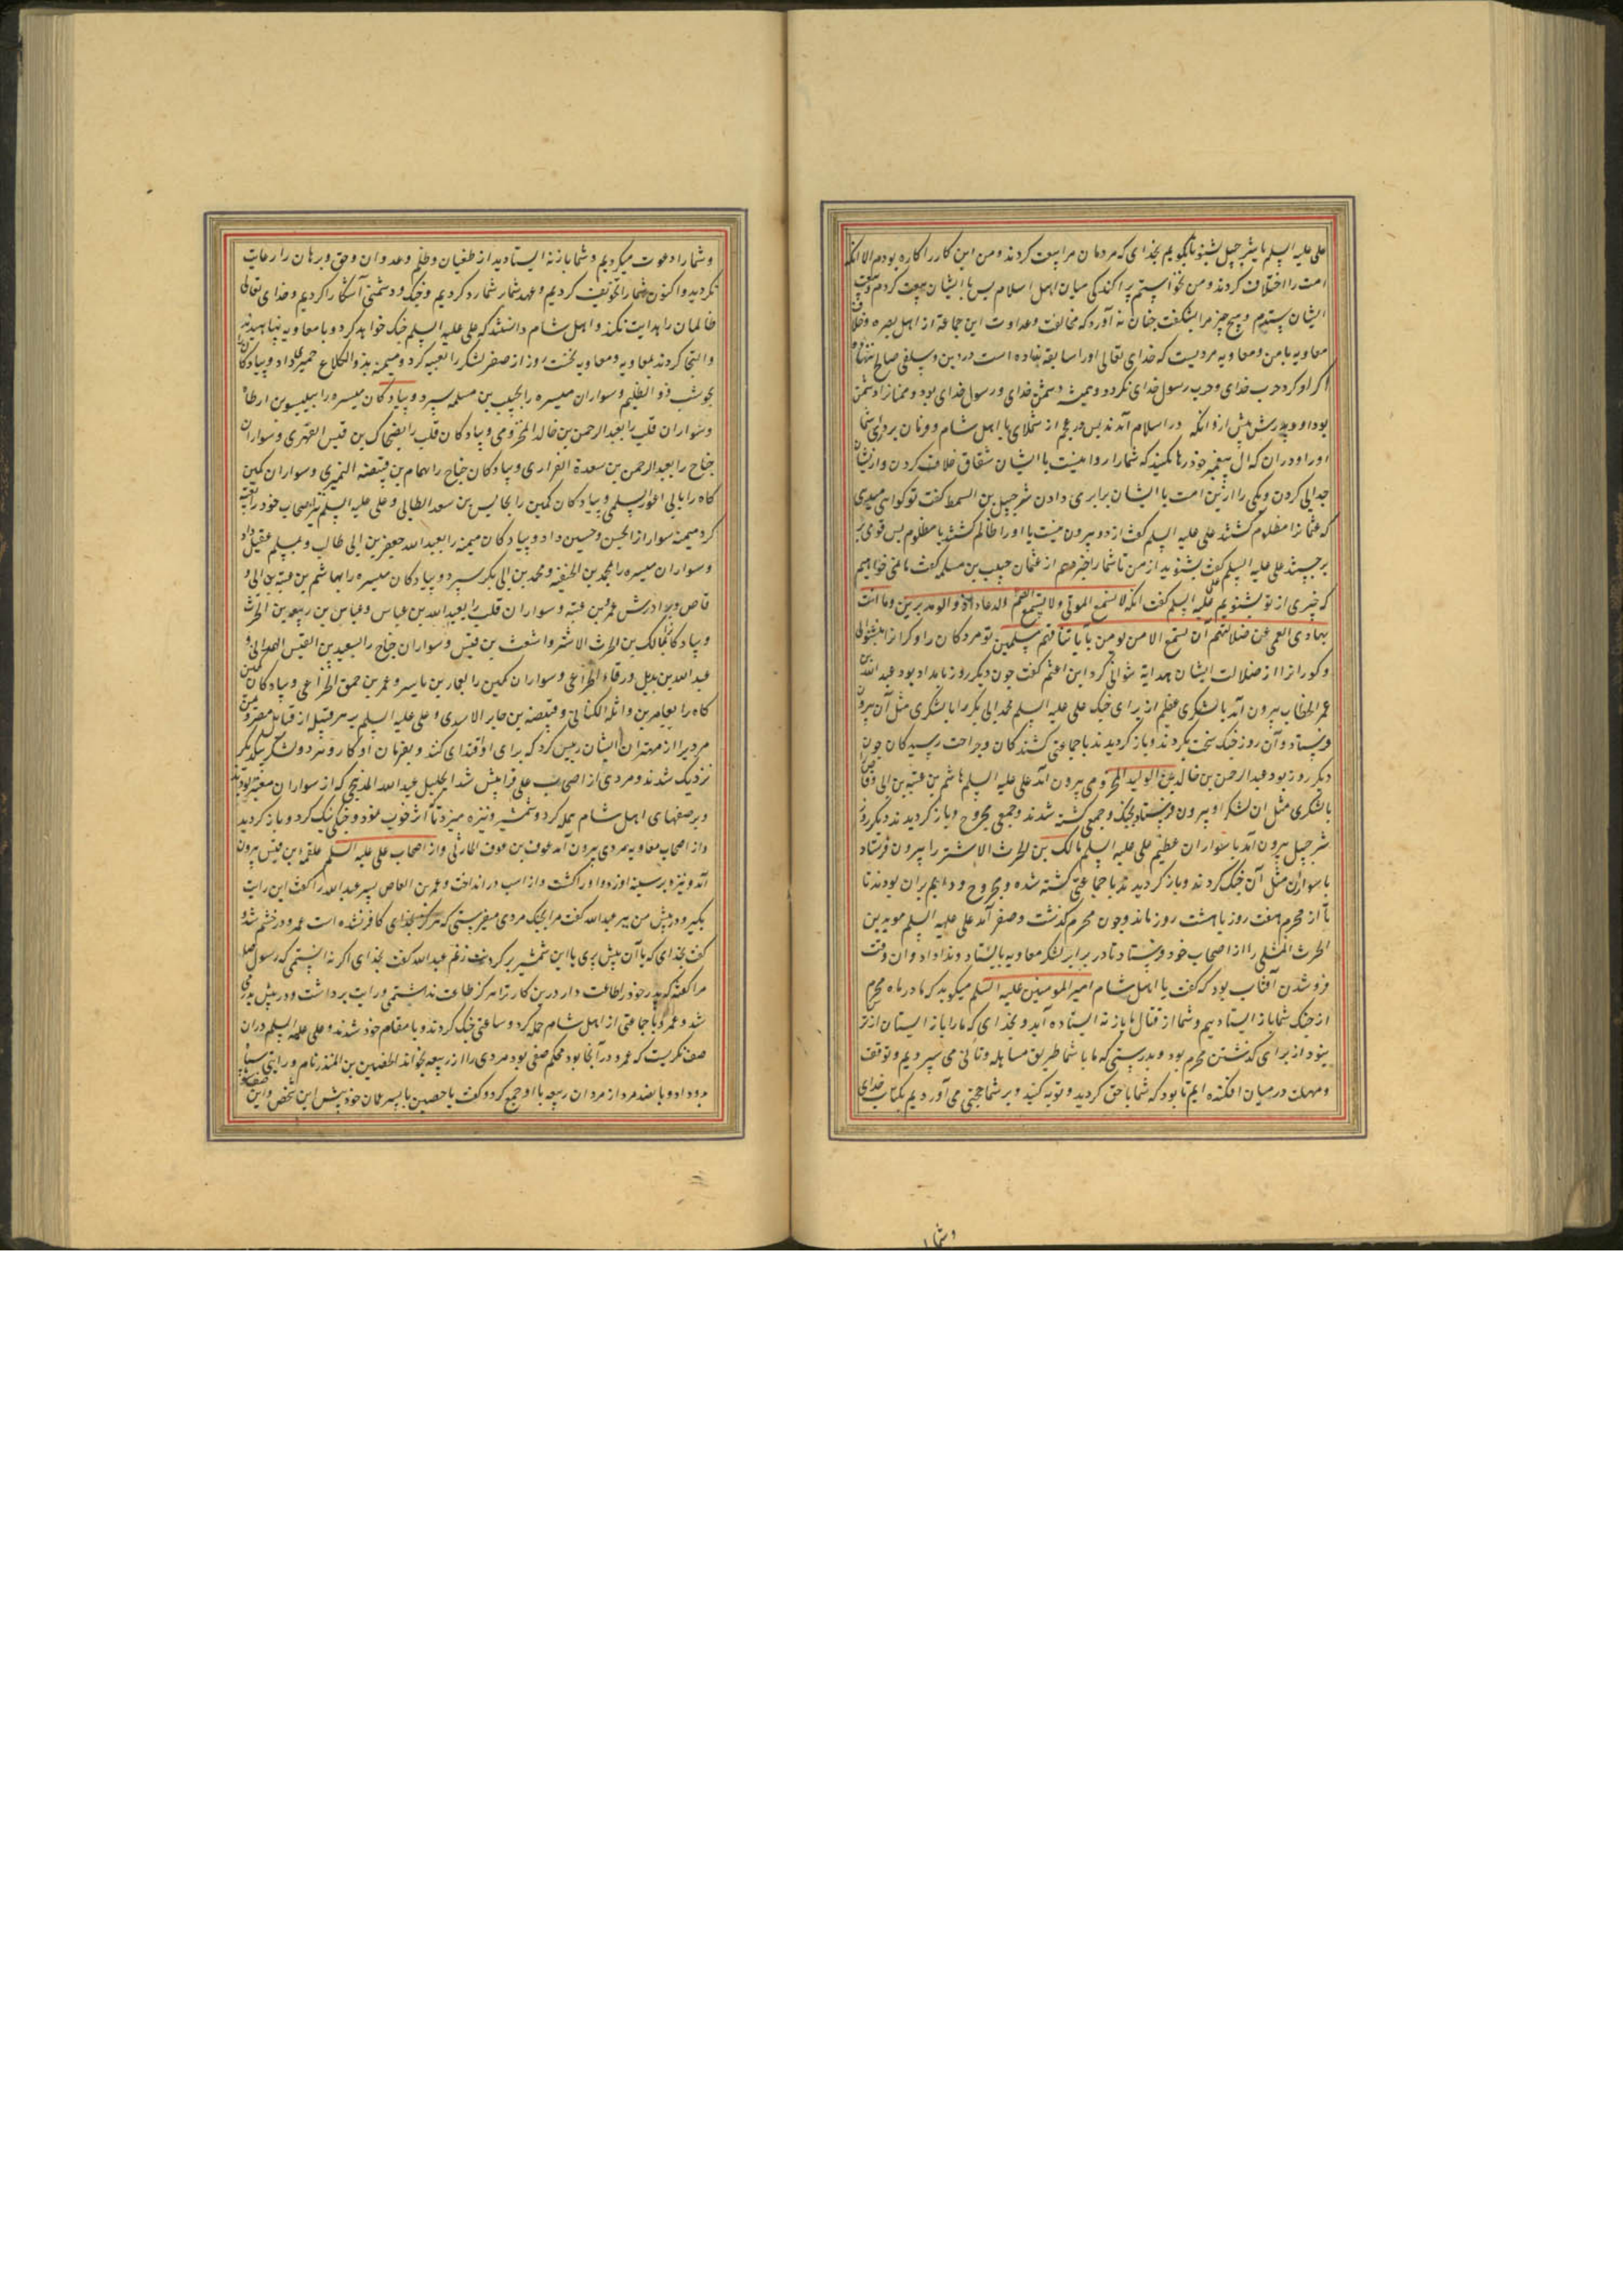 علی علیه السلم یا شرجیل بشنو تا بگویم بخدای که مردمان مرا بیعت کردند و من این کار را کاره بودم الا انکه
امت را اختلاف کردند و من نخواستم پراکندکی میان اهل اسلام پس با ایشان بیعت کردم و
ایشان ستدم و هیچ چیز مرا بشکفت چنان نه آورد که مخالفت و عداوت این جماعة از اهل بصره و خلاف
معاویه با من و معاویه مردیست که خدای تعالی او را سابقه ننهاده است در دین و سلفی صالح
اکر او کرد حرب خدای و حرب رسول خدای نکرد و همیشه دشمن خدای و رسول خدای بود و مسلمانان را دشمن
بود او و پدرش پیش از آنکه در اسلام آمدند پس در عجبم از شماهای یا اهل شام و از فرمان بردای شما
او را و دران که آل پیغمبر خود رها بکنید که شما را روا نیست با ایشان شقاق و خلاف کردن و از ایشان
جدایی کردن و یکی را ازین امت با ایشان برابری دادن شرجیل بن السمط کفت تو کواهی میدی
که عثمانرا مظلوم کشتند علی علیه السلم کفت از دو بیرون نیست یا او را ظالم کشتند یا مظلوم پس قومی بر
برجستند علی علیه السلم کفت بشنوید از من تا شما را خبر دهم از عثمان حبیب بن مسلمه کفت ما نمی خواهیم
که خبری از تو بشنویم علی علیه السلم کفت انک لا تسمع الموتی و لا تسمع الصم الدعاء اذا ولوا مدبرین و ما انت
بهادی العمی عن ضلالتهم ان تسمع الا من یومن بآیاتنا فهم مسلمین تو مردکان را و کرانرا نشنوانی
و کورانرا از ضلالت ایشان هدایة نتوانی کرد ابن اعثم کفت چون دیکر روز بامداد بود عبد الله بن
عمر الخطاب بیرون آمد با لشکری عظیم از برای جنک علی علیه السلم محمد ابی بکر را با لشکری مثل آن بیرون
فرستاد و آن روز جنک سخت بکردند و باز کردیدند با جماعتی کشتکان و جراحت رسیدکان چون
دیکر روز بود عبد الرحمن بن خالد بن الولید المخزومی بیرون آمد علی علیه السلم هاشم بن عتبه بن ابی وقاص
با لشکری مثل ان لشکر او بیرون فرستاد بجنک و جمعی کشته شدند و جمعی مجروح و باز کردیدند دیکر روز
شرجیل بیرون آمد با سواران عظیم علی علیه السلم مالک بن الحرث الاشتر را بیرون فرستاد
با سواران مثل آن جنک کردند و باز کردیدند با جماعتی کشته شده و مجروح و دایم بران بودند تا
تا از محرم هفت روز یا هشت روز ماند و چون محرم کذشت و صفر آمد علی علیه السلم موید بن
الحرث المثلی را از اصحاب خود فرستاد تا در برابر لشکر معاویه بایستاد و ندا داد و ان وقت
فرو شدن آفتاب بود که کفت یا اهل شام امیر المومنین علیه السلم میکوید که ما در ماه محرم
از جنک شما باز ایستادیم و شما از قتال ما باز نه ایستاده آید و بخدای که ما را باز ایستان از
نبود از برای کذشتن محرم بود و بدرستی که ما با شما طریق مساهله و تانی می سپردیم و توقف
و مهلت در میان افکنده ایم تا بود که شما با حق کردید و توبه کنید و بر شما حجتی می آوردیم بکتاب خدای
و شما را
و شما را دعوت میکردیم و شما باز نه ایستادید از طغیان و ظلم و عدوان و حق و برهان را رعایت
نکردید و اکنون شما را تخویف کردیم و عهد شما بر شما رد کردیم و جنک و دشمنی آشکارا کردیم و خدای تعالی
ظالمان را هدایت نکند و اهل شام دانستند که علی علیه السلم جنک خواهد کرد و با معاویه پناهیدند
و التجا کردند بمعاویه و معاویه نخست روز از صفر لشکر را تعبیه کرد و میمنه بذو الکلاع حمیر داد و پیادکان
بحوشب ذو الظلیم و سواران میسره را بحبیب بن مسلمه سپرد و پیادکان میسره را ببسر بن ارطاه
و سواران قلب را بعبد الرحمن بن خالد المخزومی و پیادکان قلب را بضحاک بن قیس الفهری و سواران
جناح را بعبد الرحمن بن سعدة الفزاری و پیادکان جناح را بهمام بن قبیصه النمیری و سواران کمین
کاه را بابی اعور السلمی و پیادکان کمین را بحابس بن سعد الطایی و علی علیه السلم نیز اصحاب خود را تعبیه
کرد میمنه سوار از الحسن و حسین داد و پیادکان میمنه را بعبد الله جعفر بن ابی طالب و مسلم عقیل داد
و سواران میسره را بمحمد بن الحنفیه و محمد بن ابی بکر سپرد و پیادکان میسره را بهاشم بن عتبه بن ابی و
قاص و برادرش عمر بن عتبه و سواران قلب را بعبد الله بن عباس و عباس بن ربیعه بن الحرث
و پیادکان بمالک بن الحرث الاشتر و اشعث بن قیس و سواران جناح را بسعید بن القیس الهمدانی و
عبد الله بن بدیل ورقاء الخزاعی و سواران کمین را بعمار بن یاسر و عمر بن حمق الخزاعی و پیادکان کمین
کاه را بعامر بن واثله الکنانی و قبیصه بن جابر الاسدی و علی علیه السلم بر هر قبیله از قبایل مضر و یمن
مردی را از مهتران ایشان رییس کرد که برای او اقتدای کنند و بفرمان او کار و هر دو لشکر بیکدیکر
نزدیک شدند و مردی از اصحاب علی فرا پیش شد ابو الجلیل عبد الله المذحجی که از سواران معتبر بود
و بر صفهای اهل شام حمله کرد و شمشیر و نیزه میزد تا اثر خوب نمود و جنکی نیک کرد و باز کردید
و از اصحاب معاویه مردی بیرون آمد عوف بن عوف الحارثی و از اصحاب علی علیه السلم علقمه ابن قیس بیرون
آمد و نیزه بر سینه او زد و او را کشت و از اسب در انداخت و عمرو بن العاص پسر عبد الله را کفت این رایت
بکیر و در پیش من بیر عبد الله کفت مرا بجنک مردی میفرستی که هرکز بخدای کافر نشده است عمرو در خشم شد و
کفت بخدای که با آن پیش بری یا این شمشیر بر کردنت زنم عبد الله کفت بخدای اکر نه انستمی که رسول صلعم
مرا کفته که پدر خود را طاعت دار درین کار ترا هرکز طاعت نداشتمی و رایت برداشت و در پیش پدر می
شد و عمرو با جماعتی از اهل شام حمله کرد و ساعتی جنک کردند و با مقام خود شدند و علی علیه السلم دران
صف نکریست که عمرو در آنجا بود محکم صفی بود مردی را از ربیعه بخواند الحضین بن المنذر نام و رایتی سیاه
بدو داد و پانصد مرد از مردان ربیعه با او جمع کرد و کفت یا حصین با پسر عمان خود پیش این شخص و این صف